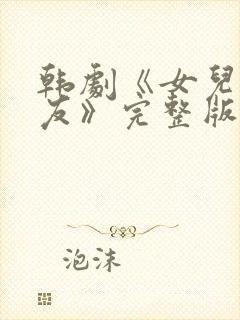 韩劇《女兒
友》完整版
泡沫